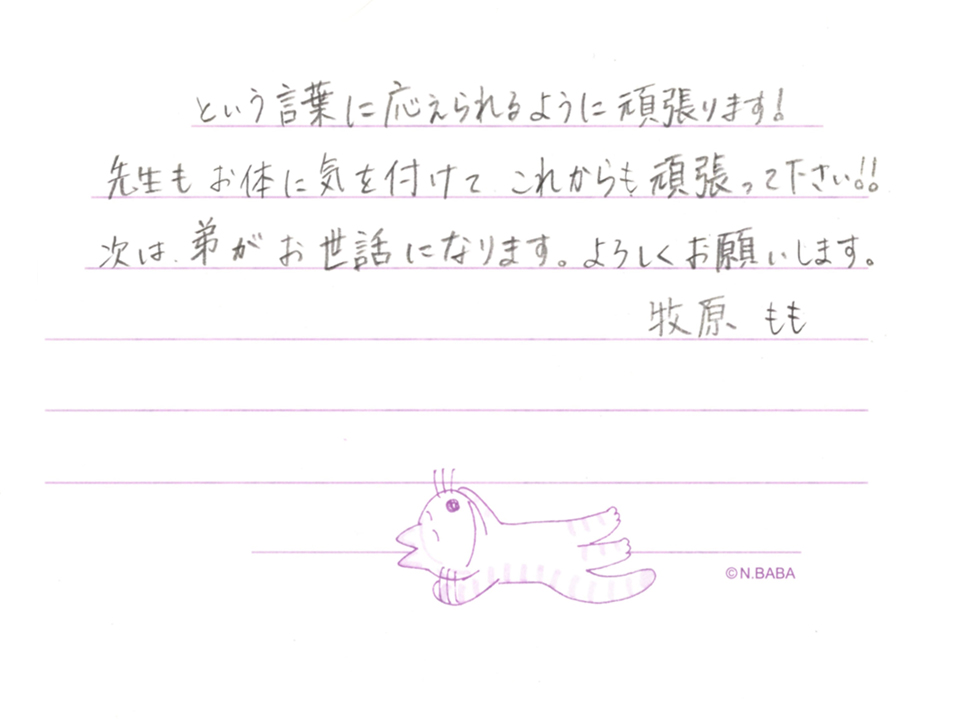 という言葉に応えられるように頑張ります!
先生もお体に気を付けて、これからも頑張って下さい!!
次は、弟がお世話になります。よろしくお願いします。
牧原 もも
©N.BABA